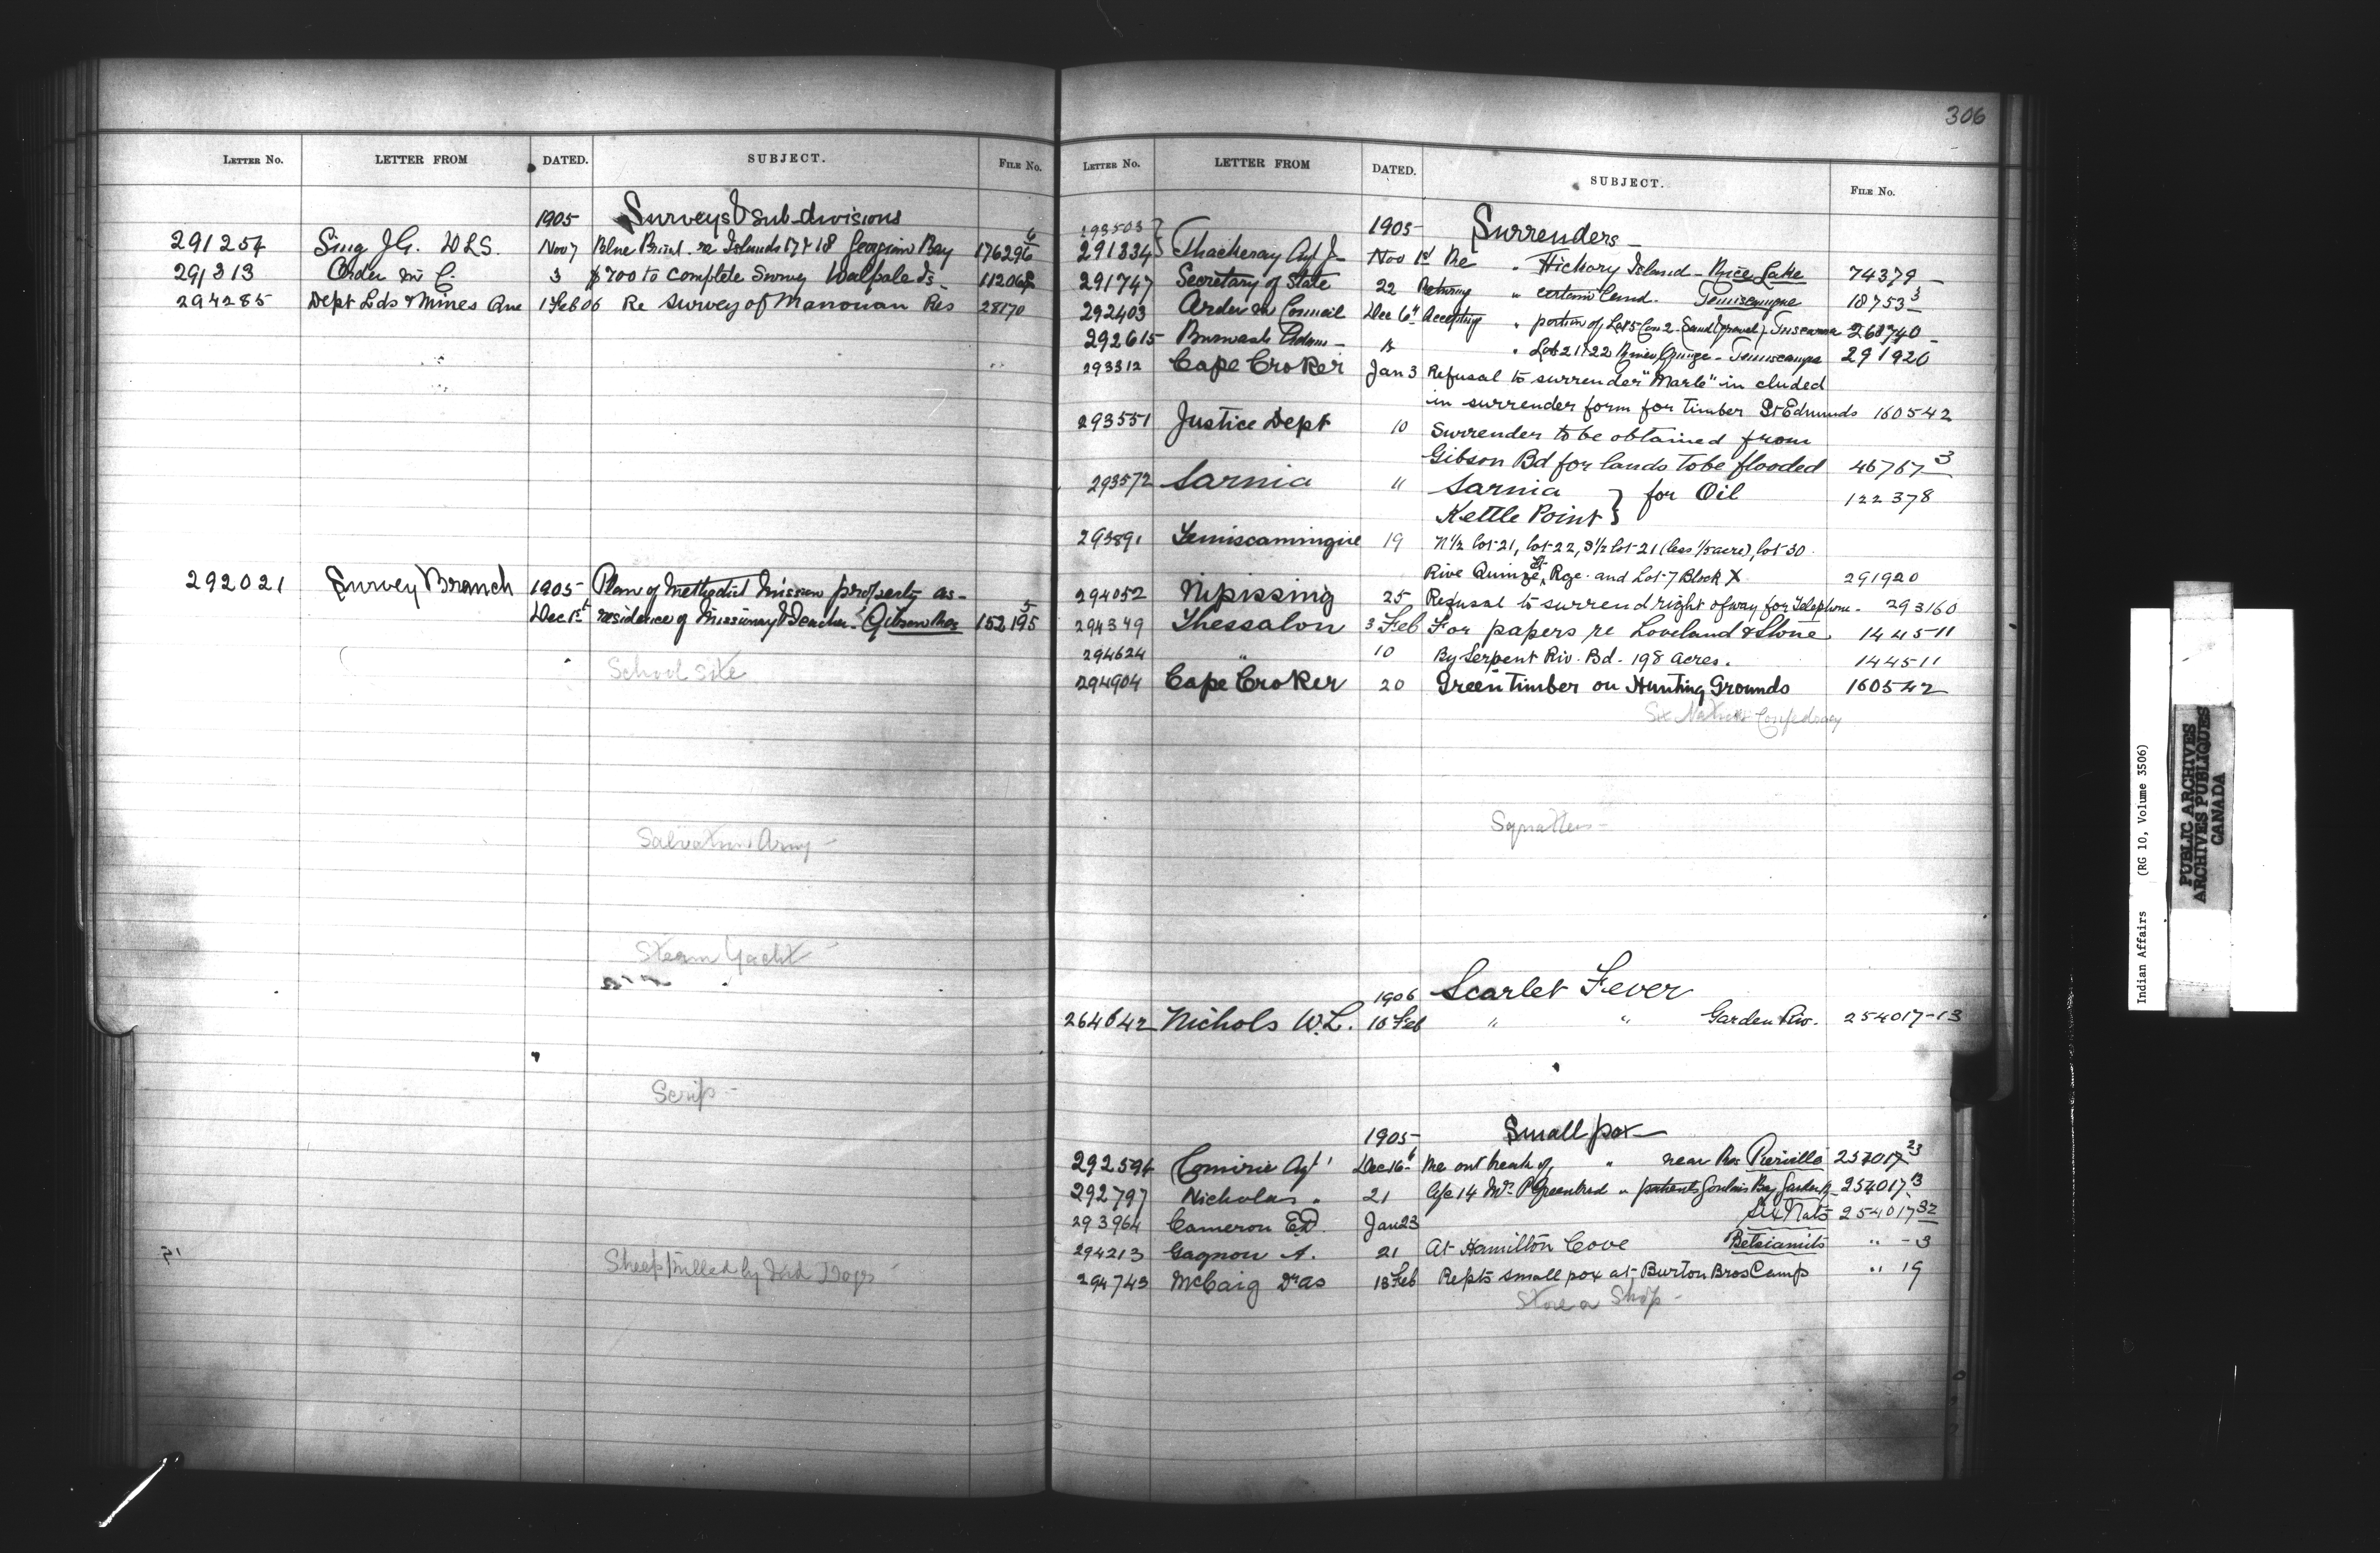 LETTER NO. LETTER FROM DATED. SUBJECT. FILE NO.
1905 Surveys & sub-divisions
291254 Sing J.G. DLS. Nov 7 Blue Print re Islands 17 & 18 Georgian Bay 176296 6
291313 Order in C. 3 $700 to complete Survey Walpole Is- 112068
294285 Dept Lds & Mines Que 1 Feb 06 Re survey of Manouan Res 28170
292021 Survey Branch 1905 Plan of Methodist Mission property as-
Dec 1st residence of Missionary & Teacher- Gibson Res 152195 5
School site
Salvation Army -
Steam Yacht -
Scrip -
Sheep killed by Ind Dogs -
306
LETTER NO. LETTER FROM DATED. SUBJECT. FILE NO.
193503 } 1905 Surrenders -
291834 } Thackeray Agt J- Nov 1st Re " Hickory Island - Rice Lake 74379 -
291747 Secretary of State 22 Returning " certain land. Temiscamque 18753 3
292403 Order in Council Dec 6th Accepting " portion of Lot 5 Con 2. Sand & gravel. Tuscarora 268740 -
292615 Burwash Adam - " Lot 21 & 22 River Quinze - Temiscamque 291920
293312 Cape Croker Jan 3 Refusal to surrender "Marle" in cluded
in surrender form for timber St Edmunds 160542
293551 Justice Dept 10 Surrender to be obtained from
Gibson Bd for lands to be flooded 46767 3
293572 Sarnia " Sarnia } for Oil 122378
Kettle Point }
293891 Temiscammgue 19 N½ lot 21, lot 22, S½ lot 21 (less ⅕ acre), lot 30.
Rive Quinze, Rge. and Lot 7 Block X. 291920
294052 Nipissing 25 Refusal to surrend right of way for Telephone. 293160
294349 Thessalon 3 Feb For papers re Loveland & Stone. 144511
294624 " 10 By Serpent Riv. Bd. 198 acres. 144511
294904 Cape Croker 20 Green timber on Hunting Grounds 160542
Six Nations Confedracy
Squatters -
1906 Scarlet Fever
264642 Nichols W.L. 16 Feb " " Garden Riv. 254017-13
1905 Small pox -
292594 Comirie Agt Dec 16th Re outbreak of " near Res Pierville 254017 23
292797 Nicholas " 21 Mrs P Greenbird " patients Goulais Bay, Garden R- 254017 13
293964 Cameron ED. Jan 23 Six Nats 254017 32
294213 Gagnon A. 21 At Hamilton Cove Betsiamits " - 3
294743 McCaig Dr as 13 Feb Repts small pox at Burton Bros Camp " 19
Store or Shop -
Indian Affairs (RG 10, Volume 3506)
PUBLIC ARCHIVES
ARCHIVES PUBLIQUES
CANADA